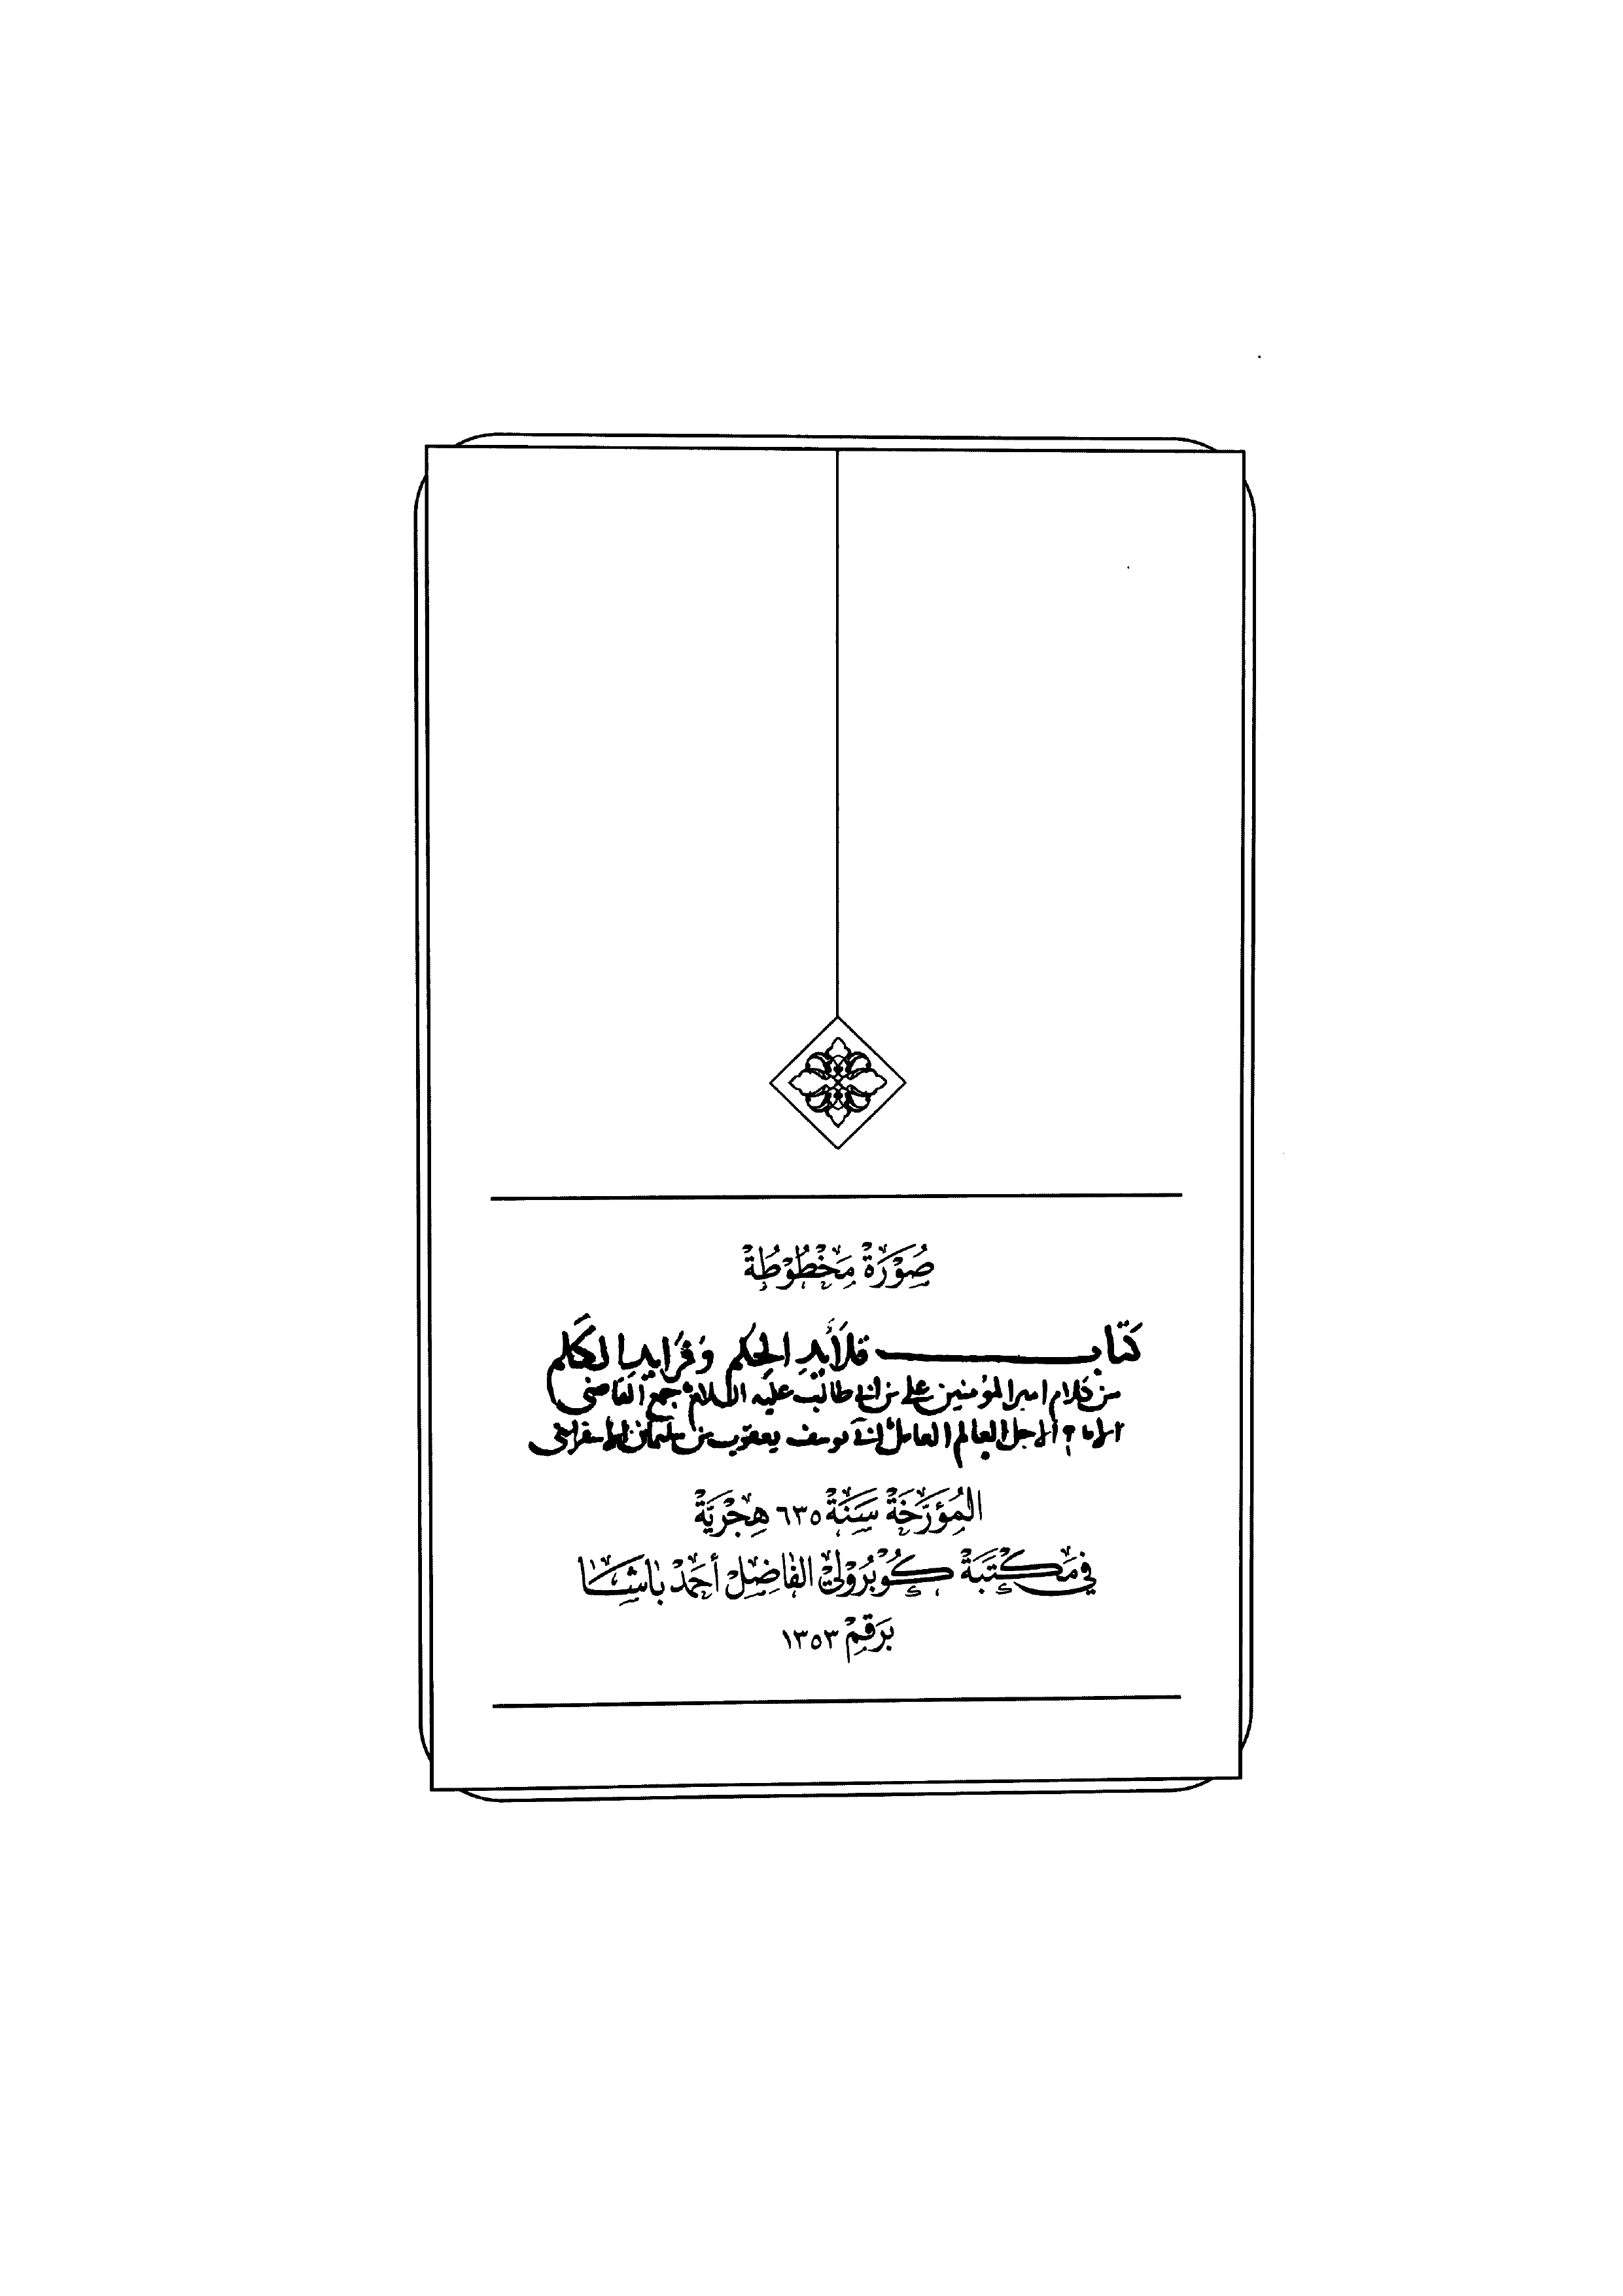 صُوْرَةْ مَخْطُوْطَةْ
كتاب قلائد الحِكم وَفَرَايد الكَلم
من كلام امير المؤمنين علي بن ابي طالب عليه السلام جمع القاضي
الامام الاجل العالم العامل ابي يوسف يعقوب بن سليمان الاسفرايني
المُؤَرَّخَةْ سَنَةْ ٦٣٥ هِجْرِيَّةْ
في مَكْتَبَةْ كُوْبْرُوْلِيْ الفَاضِلْ أَحْمَدْ بَاشَا
بَرَقِمْ ١٣٥٣